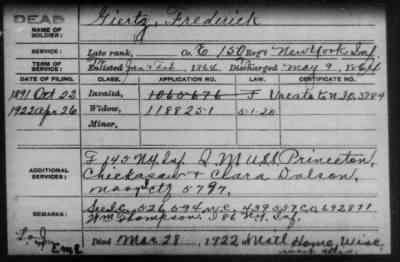 DEAD
Giertz, Frederick
NAME OF SOLDIER:
SERVICE: Late rank, Co. E 150 Reg't New York Inf.
TERM OF SERVICE: Enlisted Jan & Feb, 1864 Discharged May 9, 1864
DATE OF FILING. CLASS. APPLICATION NO. LAW. CERTIFICATE NO.
1891 Oct 22 Invalid, 1060676 Vacate 3784
1922 Apr 26 Widow, 1188251 5-1-20
Minor,
ADDITIONAL SERVICES: F 145 N.Y. Inf. U.S.S. Princeton,
Chickasaw & Clara Dolson,
5797,
REMARKS: See 526094 W.C. 439587 C 692871
Wm Thompson, 186 N.Y. Inf.
Died Mar 28, 1922 at Natl Home, Wisc,